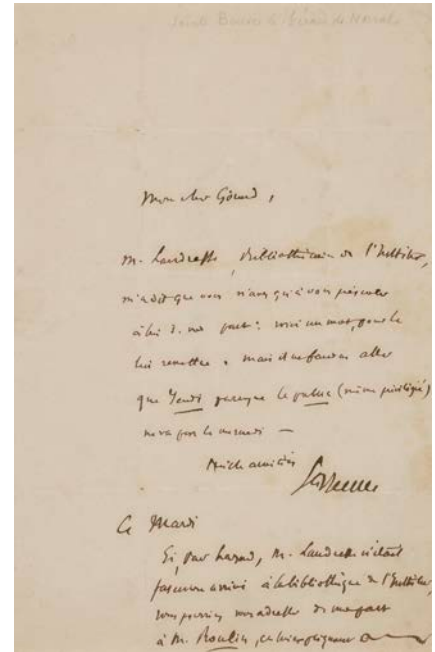 Mon cher Gérard,
M. Landresse, bibliothécaire de l'Institut,
m'a dit que vous n'avez qu'à vous présenter
à lui de ma part : voici un mot pour le
lui remettre. mais il ne faudra aller
que Jeudi parceque le public (même privilégié)
ne va pas le mercredi —
Mille amitiés
Ce Mardi
Si, par hazard, M. Landresse n'était
pas encore arrivé à la bibliothèque de l'Institut,
vous pourriez vous adresser de ma part
à M. Roulin,